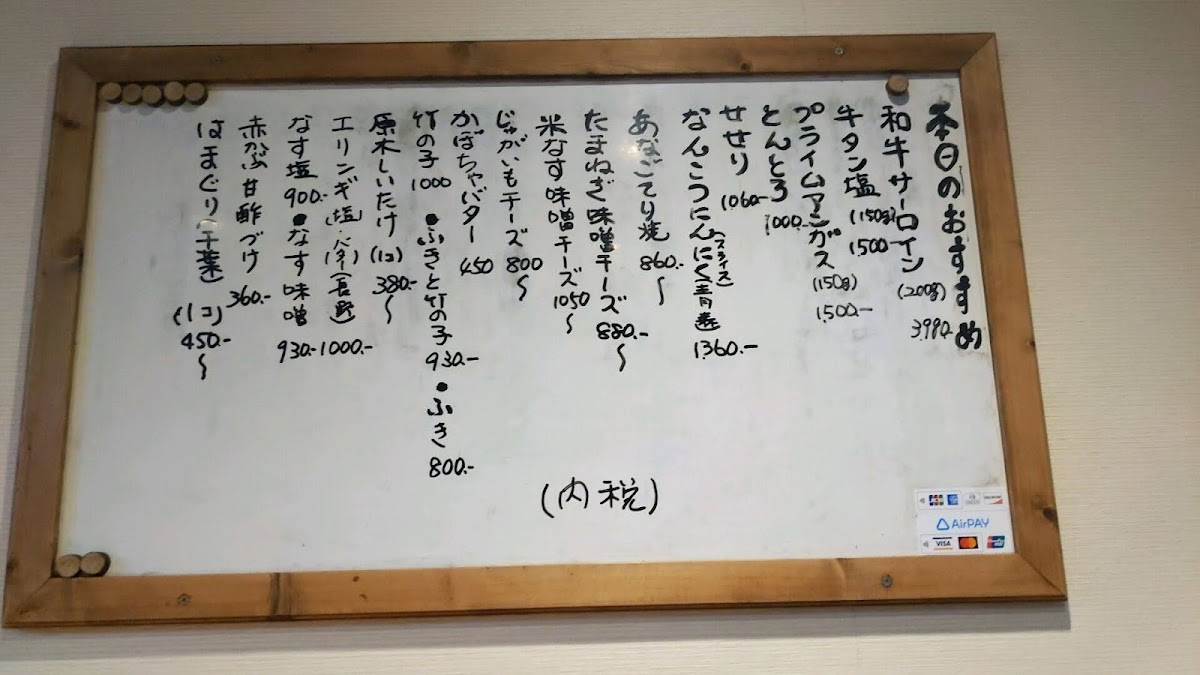 本日のおすすめ
和牛サーロイン (200g) 3,980.-
牛タン塩 (150g) 1,500
プライムアンガス (150g) 1,500.-
とんとろ 1000.-
せせり 1060.-
なんこつにんにく(スライス)(青森) 1360.-
あなごてり焼 860.-〜
たまねぎ味噌チーズ 880.-〜
米なす味噌チーズ 1050〜
じゃがいもチーズ 800〜
かぼちゃバター 450
竹の子 1000 ●ふきと竹の子 930.- ●ふき 800.-
原木しいたけ (1コ) 380.-〜
エリンギ(塩・バター)(長野) 1000.-
なす塩 900.- ●なす味噌 930.-
赤かぶ甘酢づけ 360.-
はまぐり(千葉) (1コ) 450.-〜
(内税)
JCB
AirPAY
VISA